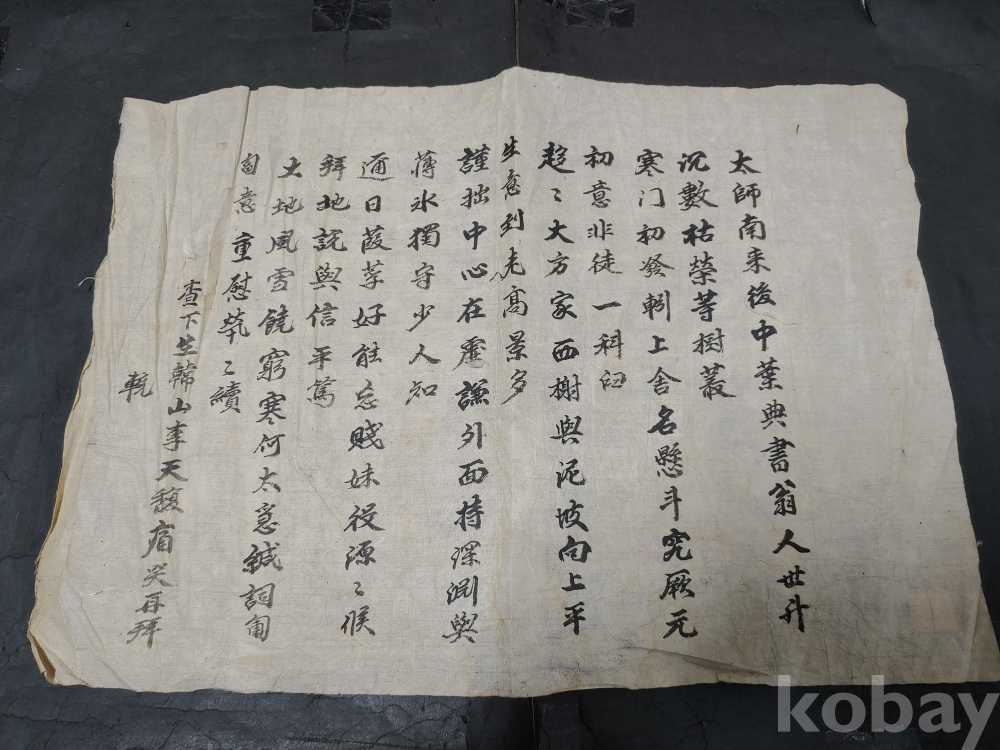 太師南来後中葉典書翁人世升
沉數枯榮等樹叢
寒门初發軔上舍名懸斗究厥元
初意非徒一科臼
趍〻大方家西榭與泥坡向上平
生意到老高景多
謹拙中心在處謙外面持深淵與
薄氷獨守少人知
邇日葭莩好能忘賤妹役源〻候
拜地說與信平篤
土地風雪饒窮寒何太意緘詞匍
匐意重慰煢〻續
查下生韓山李天馥痛哭再拜
輓
kobay